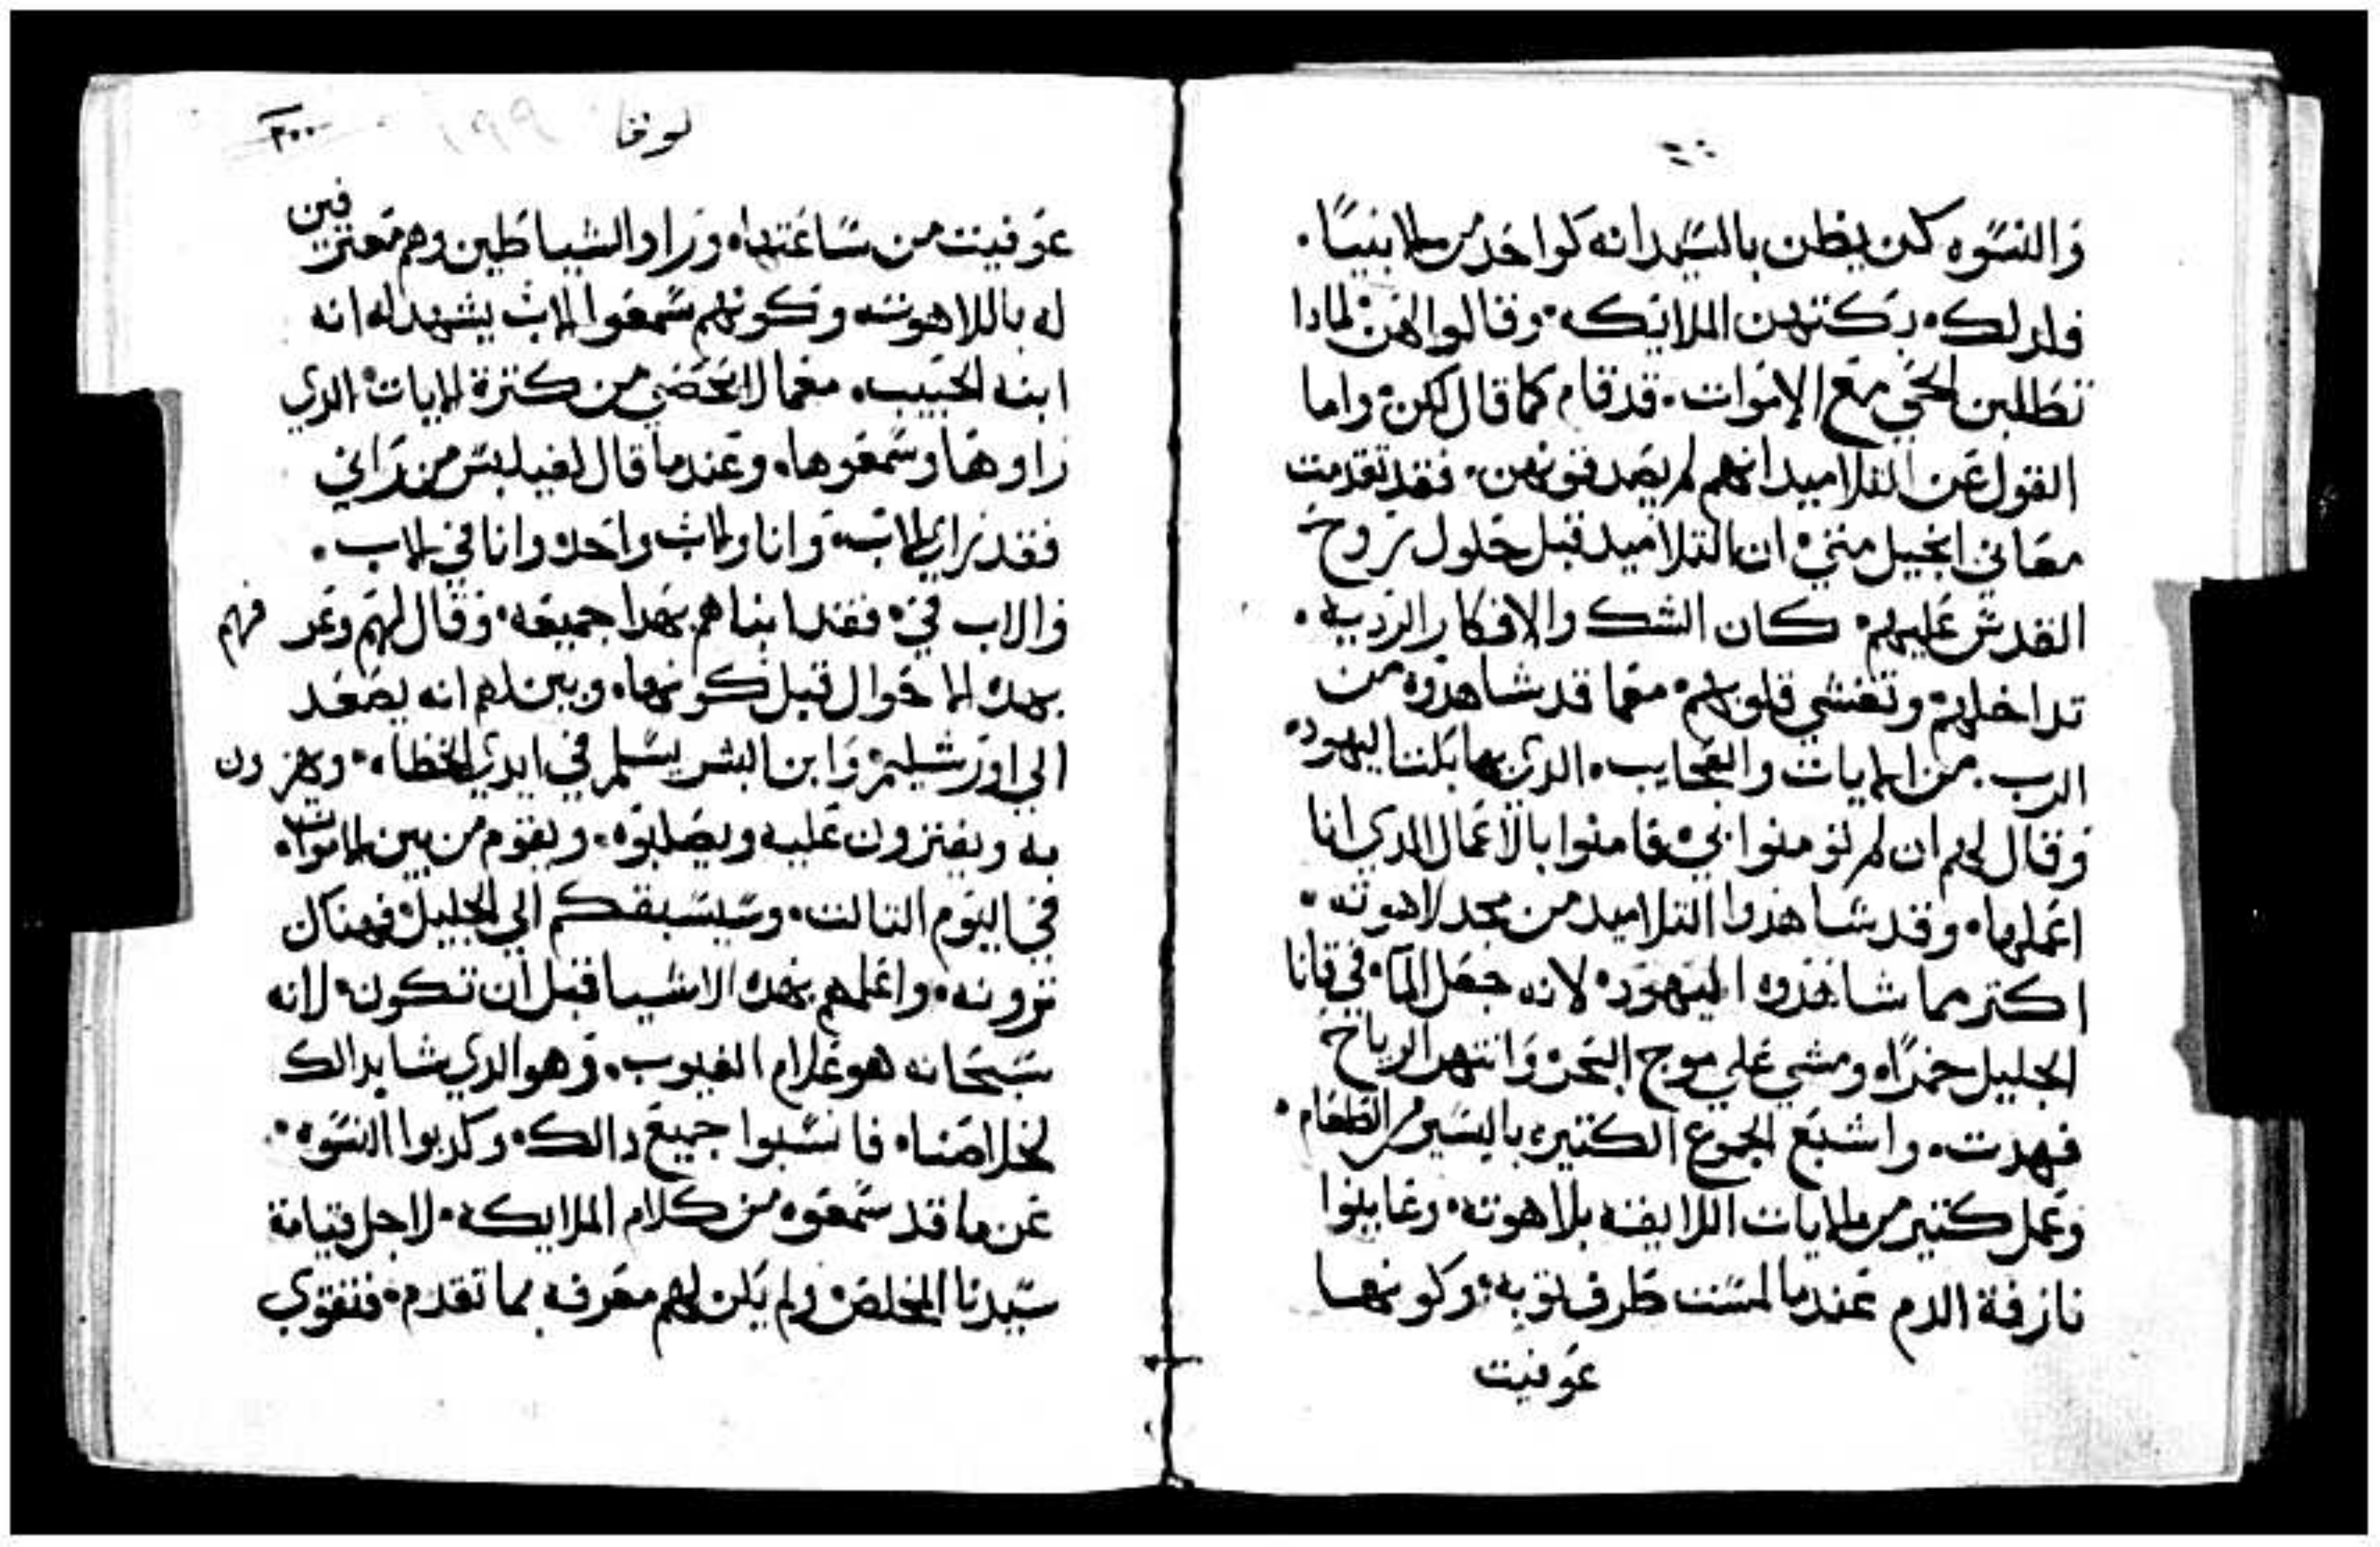 والنسوه كن يظن بالسيد انه كواحد من الانبيا.
فلدلك بكتهن الملايكه وقالوا لهن لمادا
تطلبن الحي مع الاموات. قد قام كما قال لكن واما
القول عن التلاميد انهم لم يصدقونهن. فقد تقدمت
معاني انجيل متي ان التلاميد قبل حلول روح
القدس عليهم كان الشك والافكار الرديه.
تداخلهم وتغشي قلوبهم معما قد شاهدوه من
الرب. من الايات والعجايب. الدي بها بكتنا اليهود
وقال لهم ان لم تومنوا بي فامنوا بالاعمال الدي انا
اعملها. وقد شاهدوا التلاميد من مجد لاهوته.
اكتر مما شاهدوه اليهود لانه جعل الما في قانا
الجليل خمرا. ومشي علي موج البحر وانتهر الرياح
فهدت. واشبع الجموع الكتيره باليسير من الطعام.
وعمل كتير من الايات اللايقه بلاهوته. وعاينوا
نازفة الدم عندما لمست طرف توبه. وكونها
عوفيت
لوقا
٢٠٠
١٩٩
عوفيت من ساعتها. وراوا الشياطين وهم معترفين
له باللاهوته وكونهم سمعوا الاب يشهد له انه
ابنه الحبيب. معما لا تحصي من كترة الايات الدي
راوها وسمعوها. وعندما قال لفيلبس من راني
فقد راي الاب. وانا والاب واحد وانا في الاب.
والاب في. فقد انباهم بهدا جميعه. وقال لهم وعرفهم
بهده الاحوال قبل كونها. وبين لهم انه يصعد
الي اورشليم وابن البشر يسلم في ايدي الخطاه. ويهزون
به ويفترون عليه ويصلبوه. ويقوم من بين الاموات
في اليوم التالت. وسيسبقكم الي الجليل فهناك
ترونه. واعلمهم بهده الاشيا قبل ان تكون لانه
سبحانه هو علام الغيوب. وهو الدي شا بدالك
لخلاصنا. فانسبوا جميع دالك. وكدبوا النسوه.
عن ما قد سمعوه من كلام الملايكه. لاجل قيامة
سيدنا المخلص ولم يكن لهم معرفه بما تقدم. فتقوي